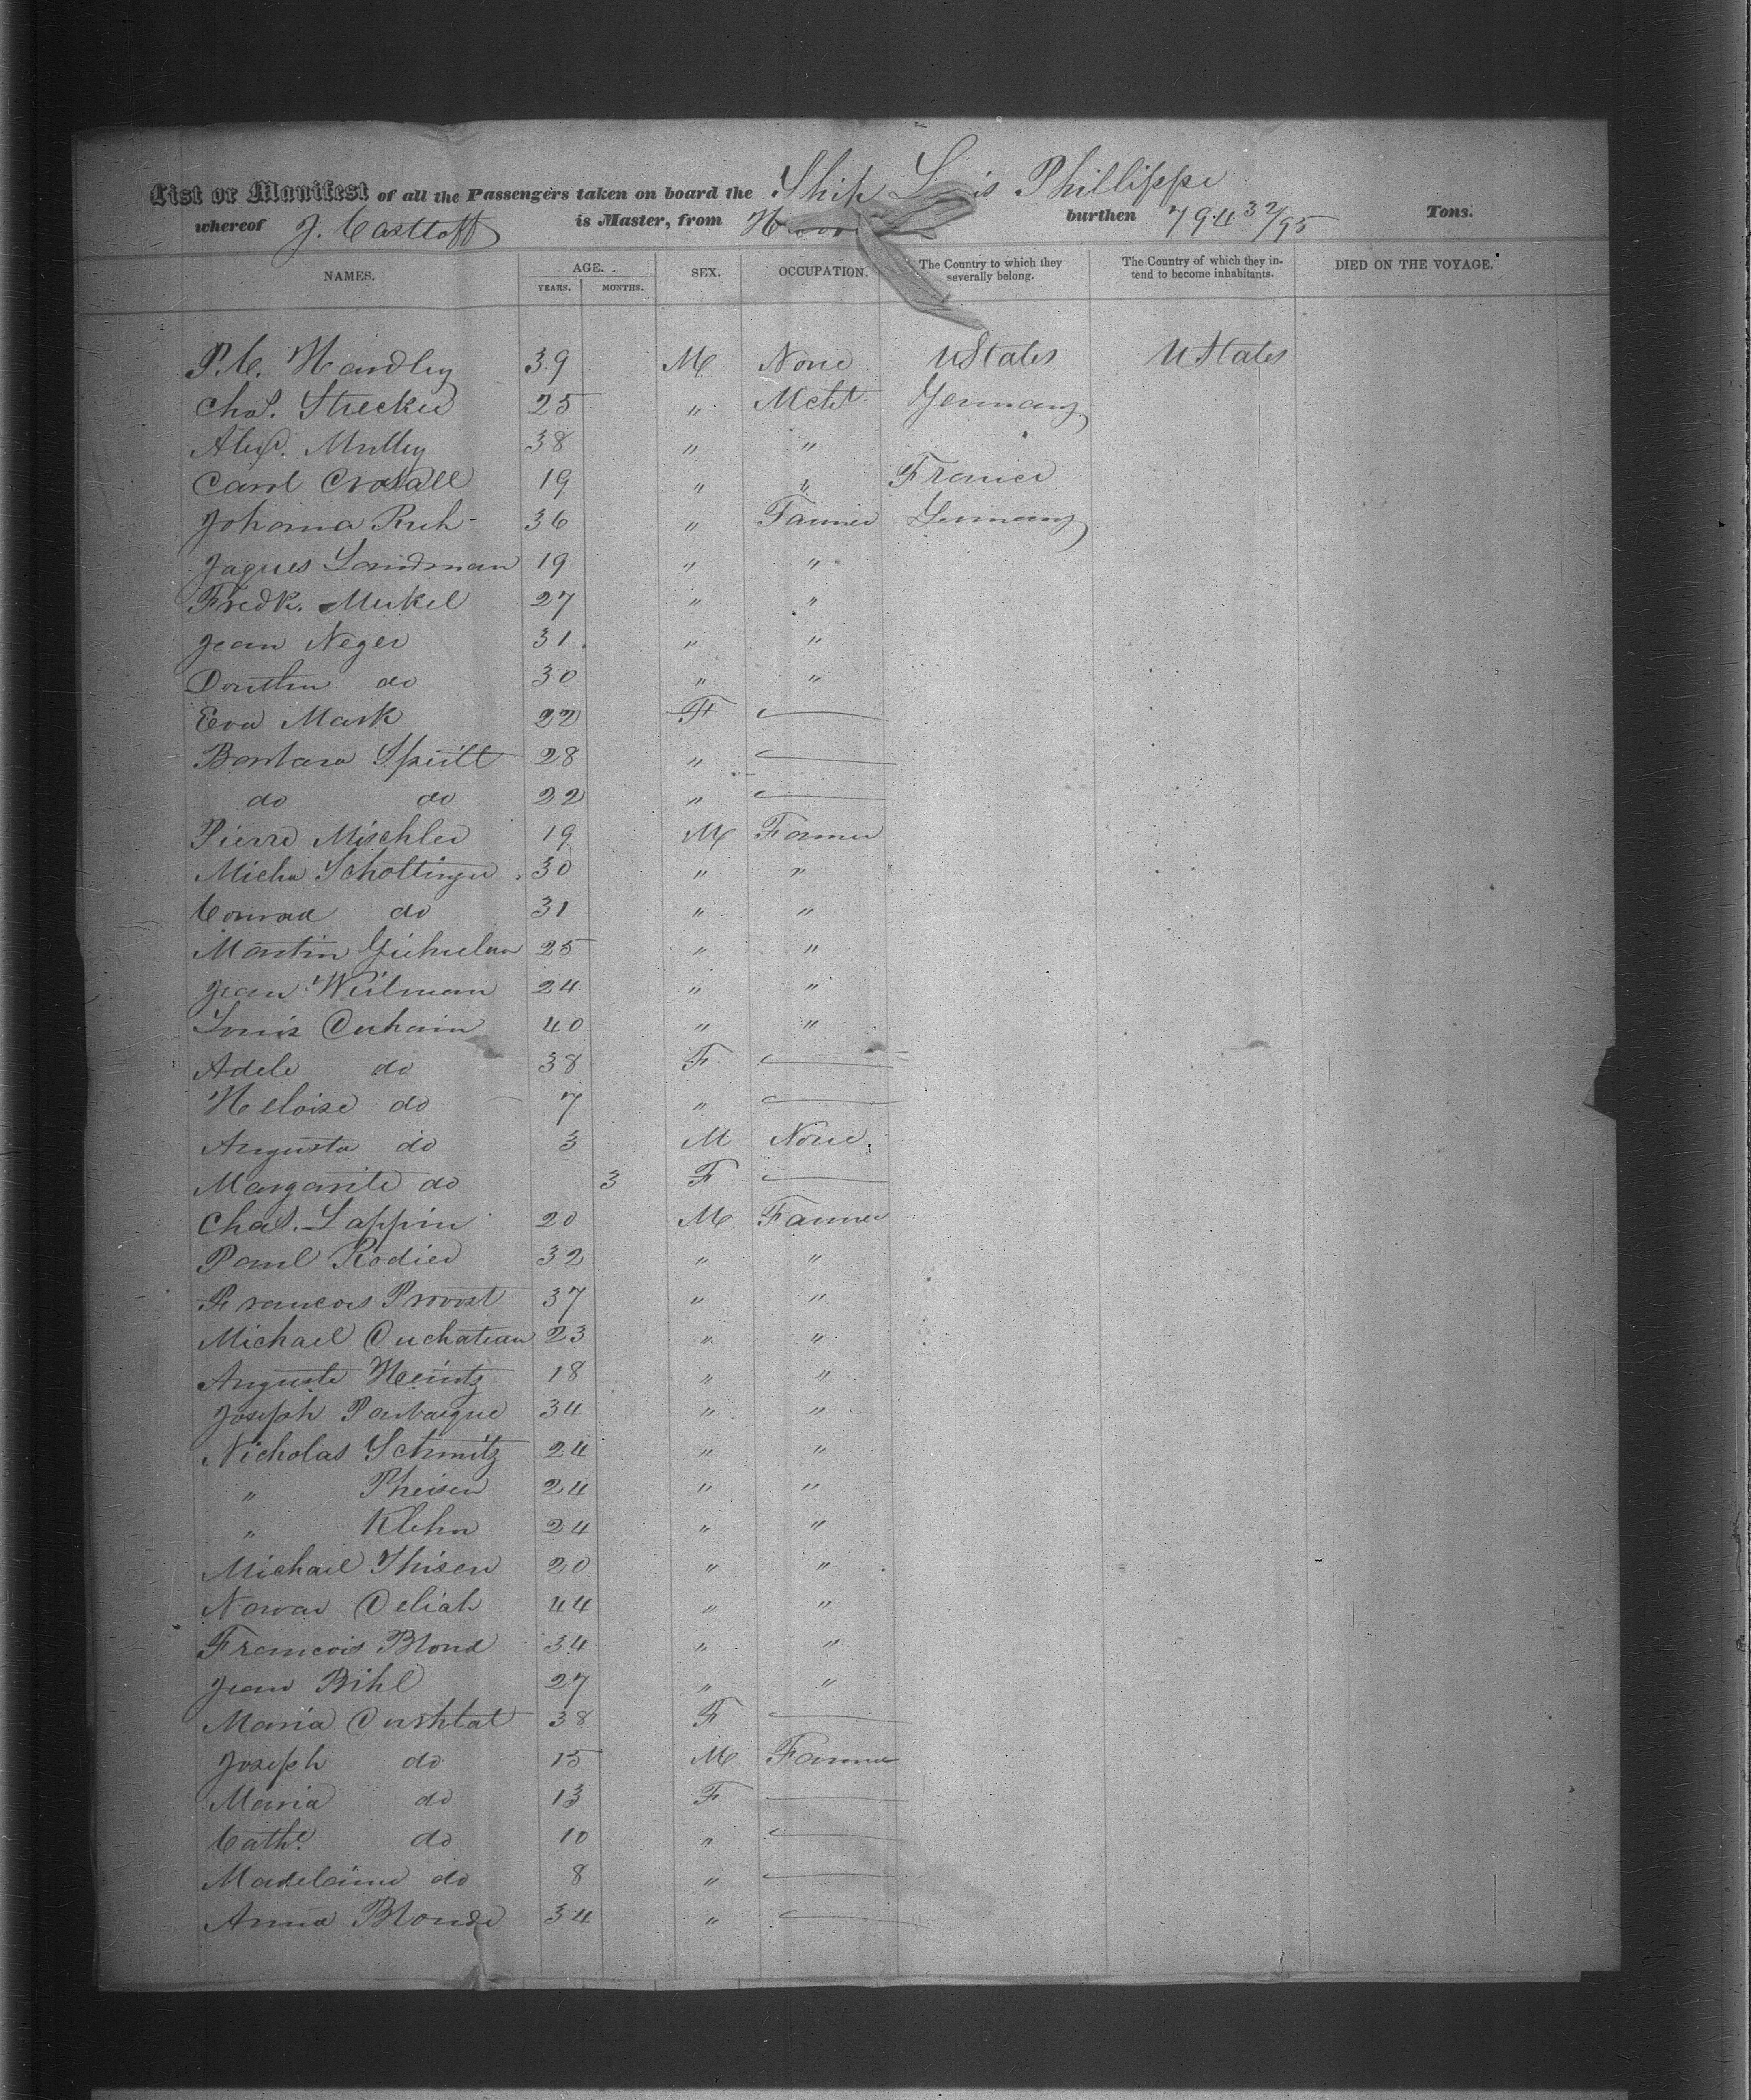 List or Manifest of all the Passengers taken on board the Ship Louis Phillippe
whereof J. Castloff is Master, from Havre burthen 794 32/95 Tons.
NAMES. AGE. SEX. OCCUPATION. The Country to which they severally belong. The Country of which they intend to become inhabitants. DIED ON THE VOYAGE.
YEARS. MONTHS.
P. C. Handley 39 M None UStates UStates
Chas. Strecker 25 " Mcht Germany
Alex. Mulley 38 " "
Carol 19 " " France
Johanna Ruh 36 " Farmer Germany
Jaques Landman 19 " "
Fredk. Meikel 27 " "
Jean Neger 31 " "
do 30 " "
Eva Mark 22 F —
Barbara 28 " —
do do 22 " —
Pierre Mischler 19 M Farmer
Micha Schottinger 30 " "
Conrad do 31 " "
Martin 25 " "
Jean Weilman 24 " "
Louis Duhain 40 " "
Adele do 38 F —
Heloise do 7 " —
Augusta do 3 M None
Margarite do 3 F —
Chas. Lappin 20 M Farmer
Paul Rodier 32 " "
Francois Provost 37 " "
Michael Duchateau 23 " "
Auguste Heintz 18 " "
Joseph 34 " "
Nicholas Schmitz 24 " "
" Theisen 24 " "
" Klehn 24 " "
Michael Thisen 20 " "
Deliah 44 " "
Francois Blond 34 " "
Jean Bihl 27 " "
Maria Dushtal 38 F —
Joseph do 15 M Farmer
Maria do 13 F —
Cathe. do 10 " —
Madelaine do 8 " —
Anna Blonde 34 " —